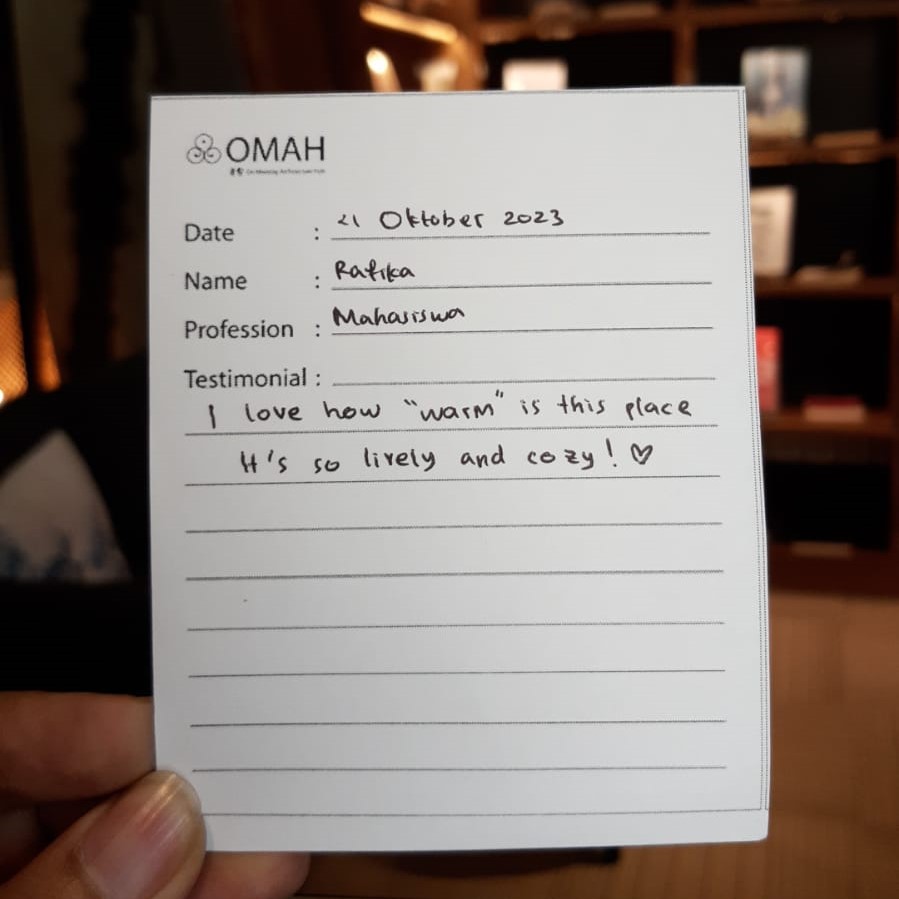 OMAH
Date : 21 Oktober 2023
Name : Rafika
Profession : Mahasiswa
Testimonial :
I love how "warm" is this place
It's so lively and cozy! ♡